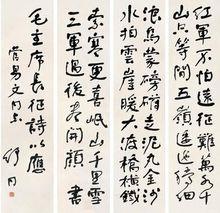 红軍不怕遠征難万水千
山只等闲五嶺逶迤腾细
浪烏蒙磅礴走泥丸金沙
水拍雲崖暖大渡橋横鐵
索寒更喜岷山千里雪
三軍過後尽開颜 書
毛主席長征詩以應
易文同志
舒同